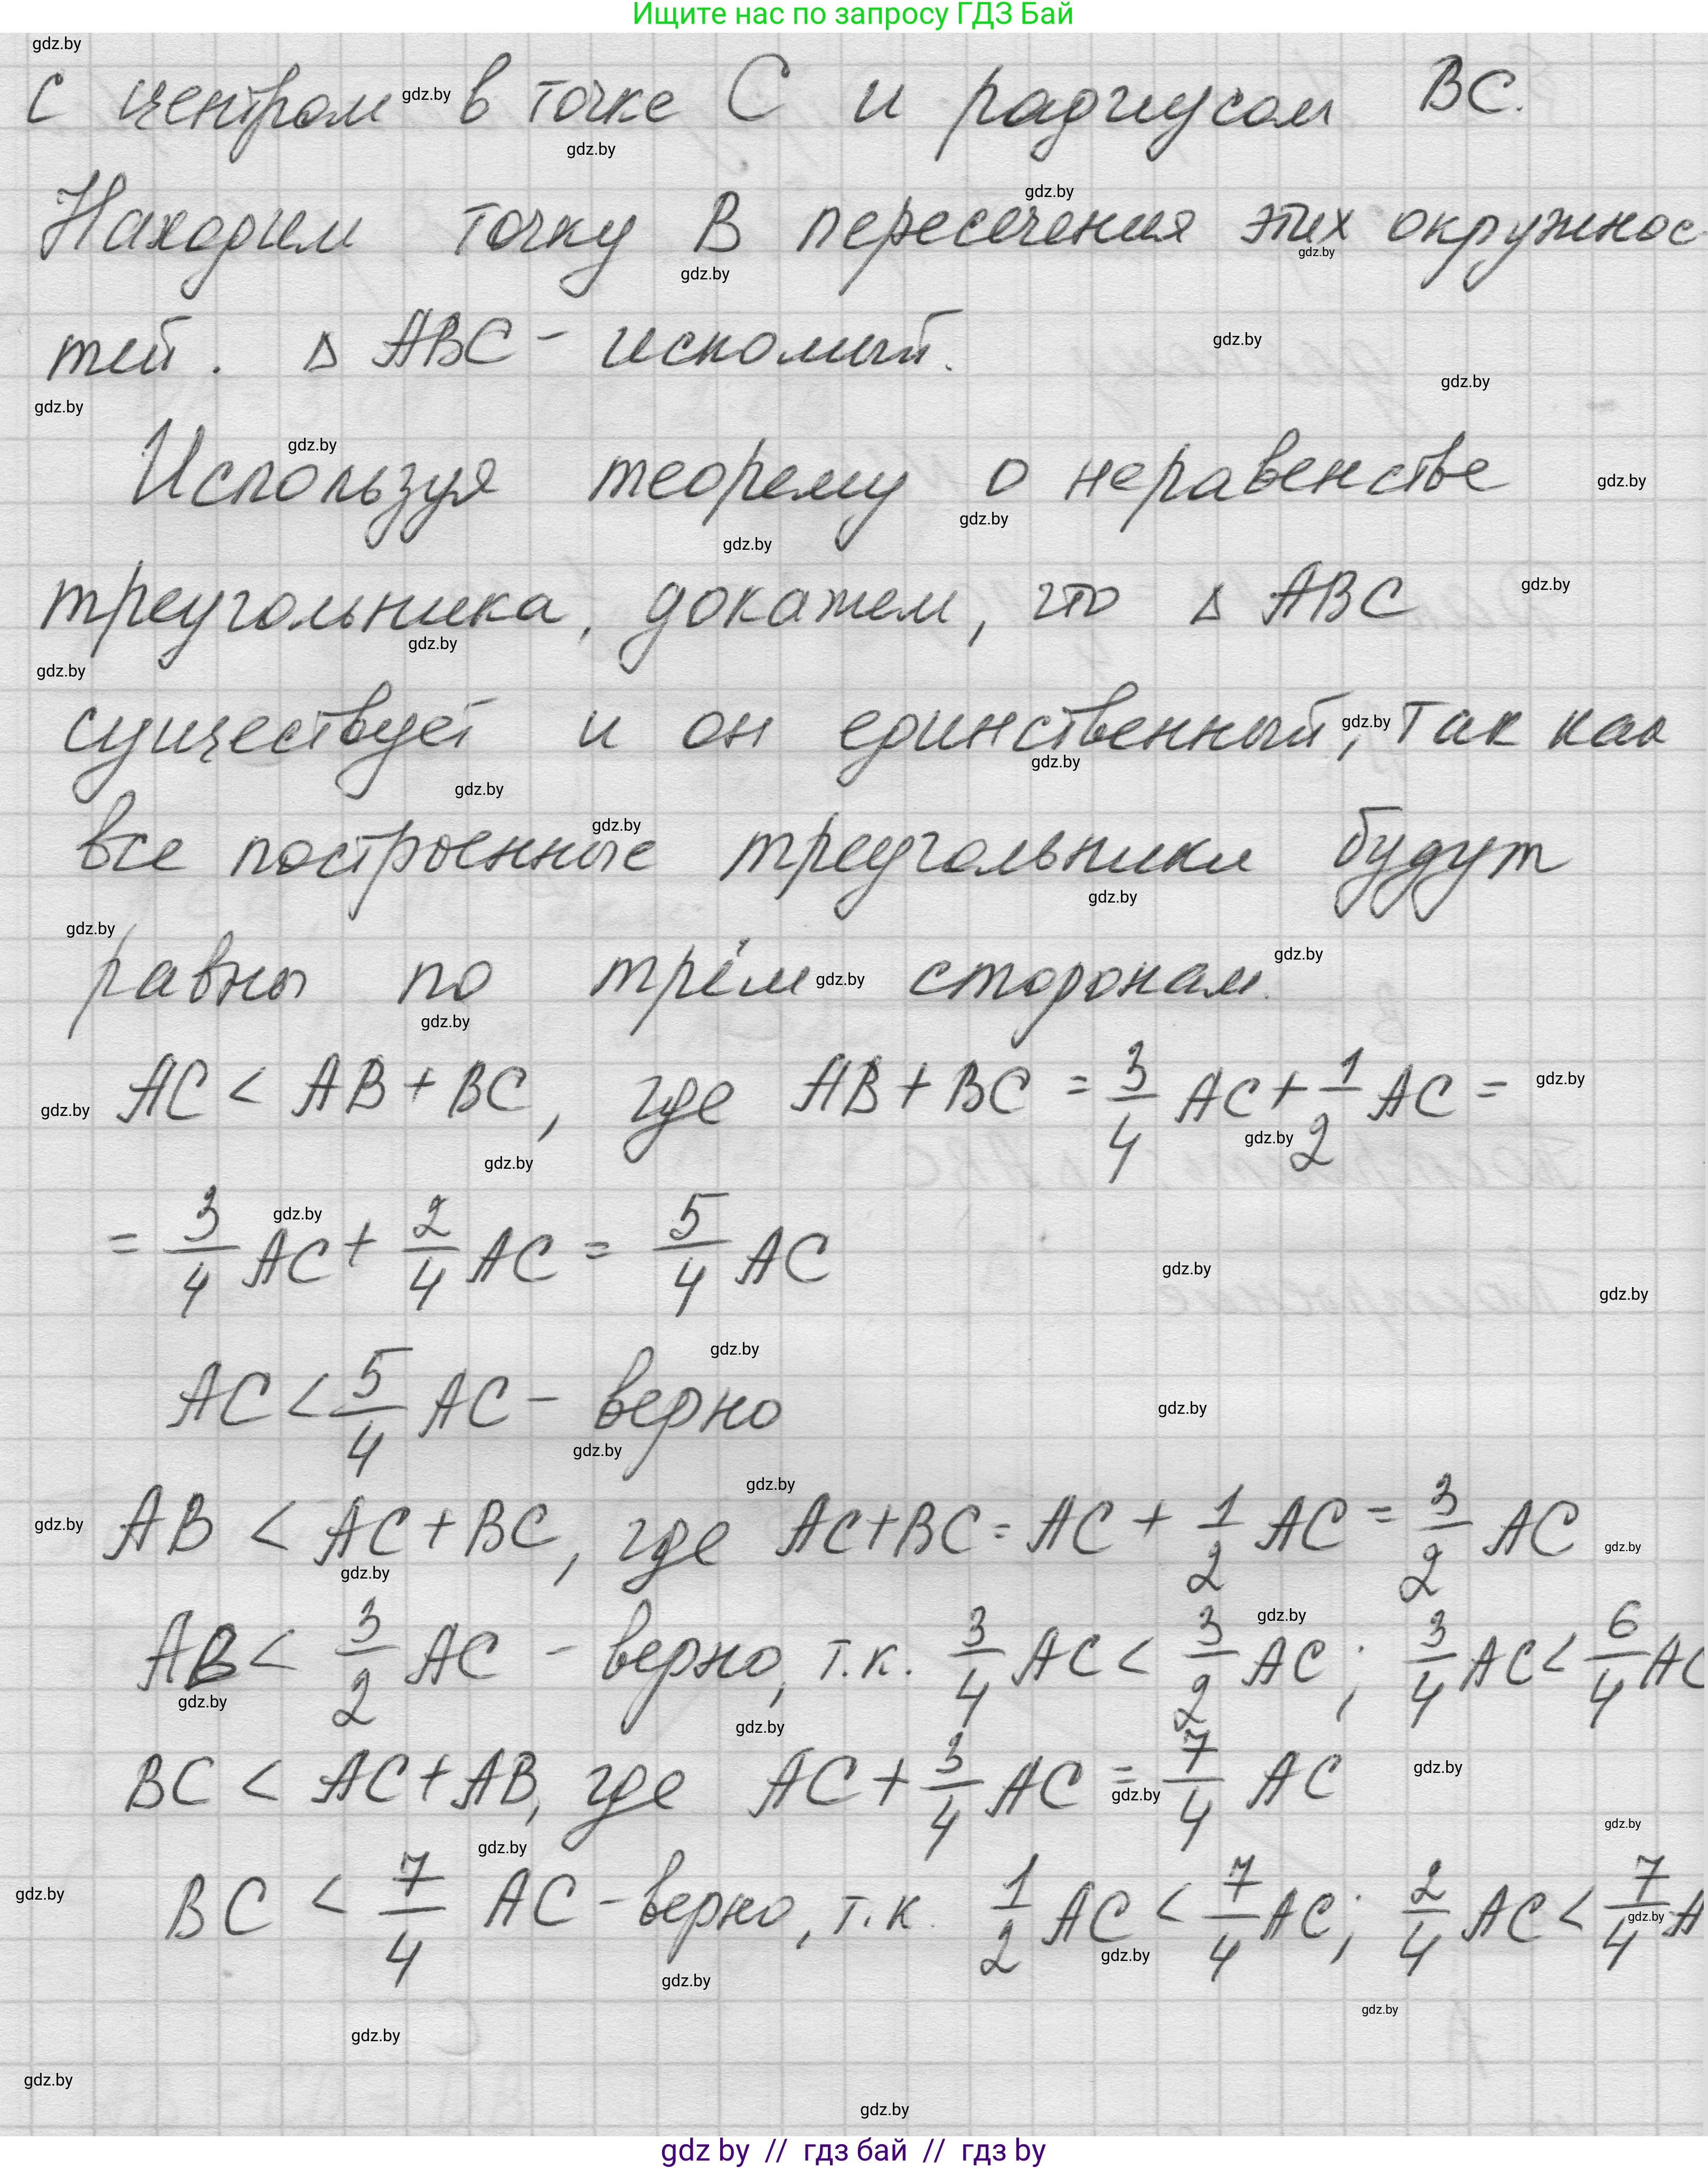 Ищите нас по запросу ГДЗ Бай
с центром в точке C и радиусом BC.
Находим точку B пересечения этих окружнос-
тей. Δ ABC - искомый.
Используя теорему о неравенстве
треугольника, докажем, что Δ ABC
существует и он единственный, так как
все построенные треугольники будут
равны по трём сторонам.
AC < AB + BC, где AB + BC = 3/4 AC + 1/2 AC =
= 3/4 AC + 2/4 AC = 5/4 AC
AC < 5/4 AC - верно
AB < AC + BC, где AC + BC = AC + 1/2 AC = 3/2 AC
AB < 3/2 AC - верно, т.к. 3/4 AC < 3/2 AC; 3/4 AC < 6/4 AC
BC < AC + AB, где AC + 3/4 AC = 7/4 AC
BC < 7/4 AC - верно, т.к. 1/2 AC < 7/4 AC; 2/4 AC < 7/4 A
gdz by // гдз бай // гдз by